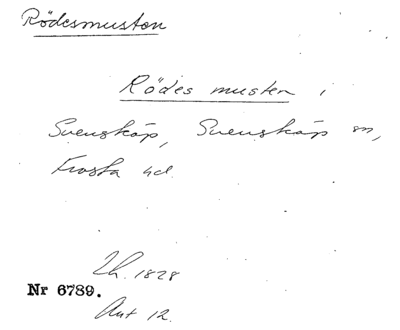 Rödesmusten
Rödes musten i
Svensköp, Svensköp sn,
Frosta hd.
Lh. 1828
Nr 6789.
Avt 12.